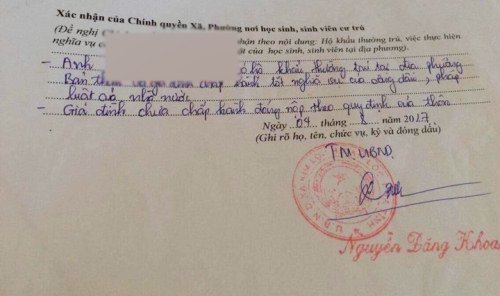 Xác nhận của Chính quyền Xã, Phường nơi học sinh, sinh viên cư trú
(Đề nghị
nhận theo nội dung: Hộ khẩu thường trú, việc thực hiện
nghĩa vụ c
ật của học sinh, sinh viên tại địa phương).
- Anh
có hộ khẩu thường trú tại địa phương
Bản thân và gia đình chấp hành tốt nghĩa vụ của công dân, pháp
luật của nhà nước
- Gia đình chưa chấp hành đóng nộp theo quy định của thôn
Ngày 04 tháng 8 năm 2017
(Ghi rõ họ, tên, chức vụ, ký và đóng dấu)
TM UBND
Nguyễn Đăng Khoa